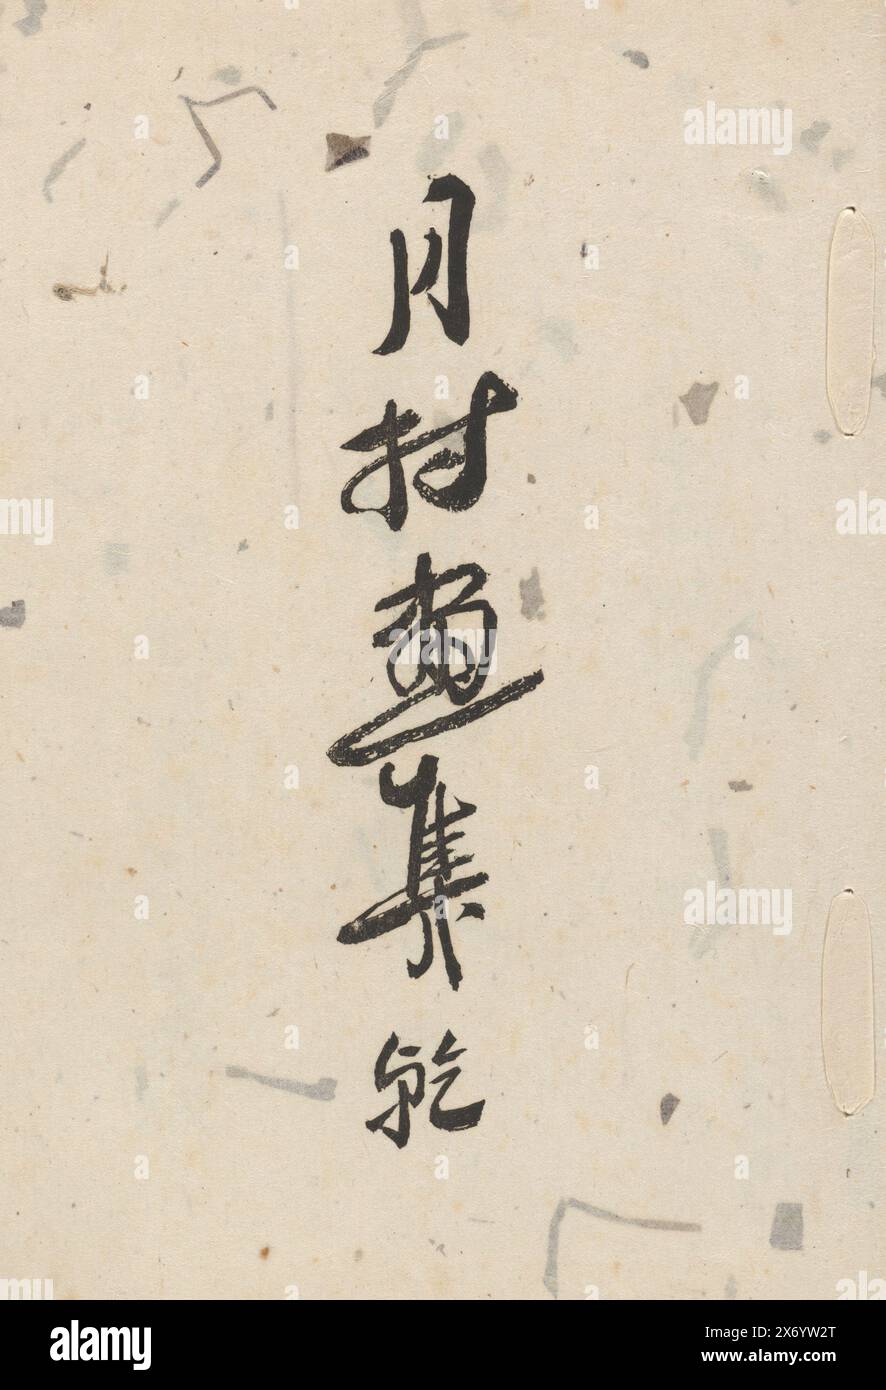 月村画集 乾
alamy
alamy
alamy
Image ID: 2X6YW2T
www.alamy.com